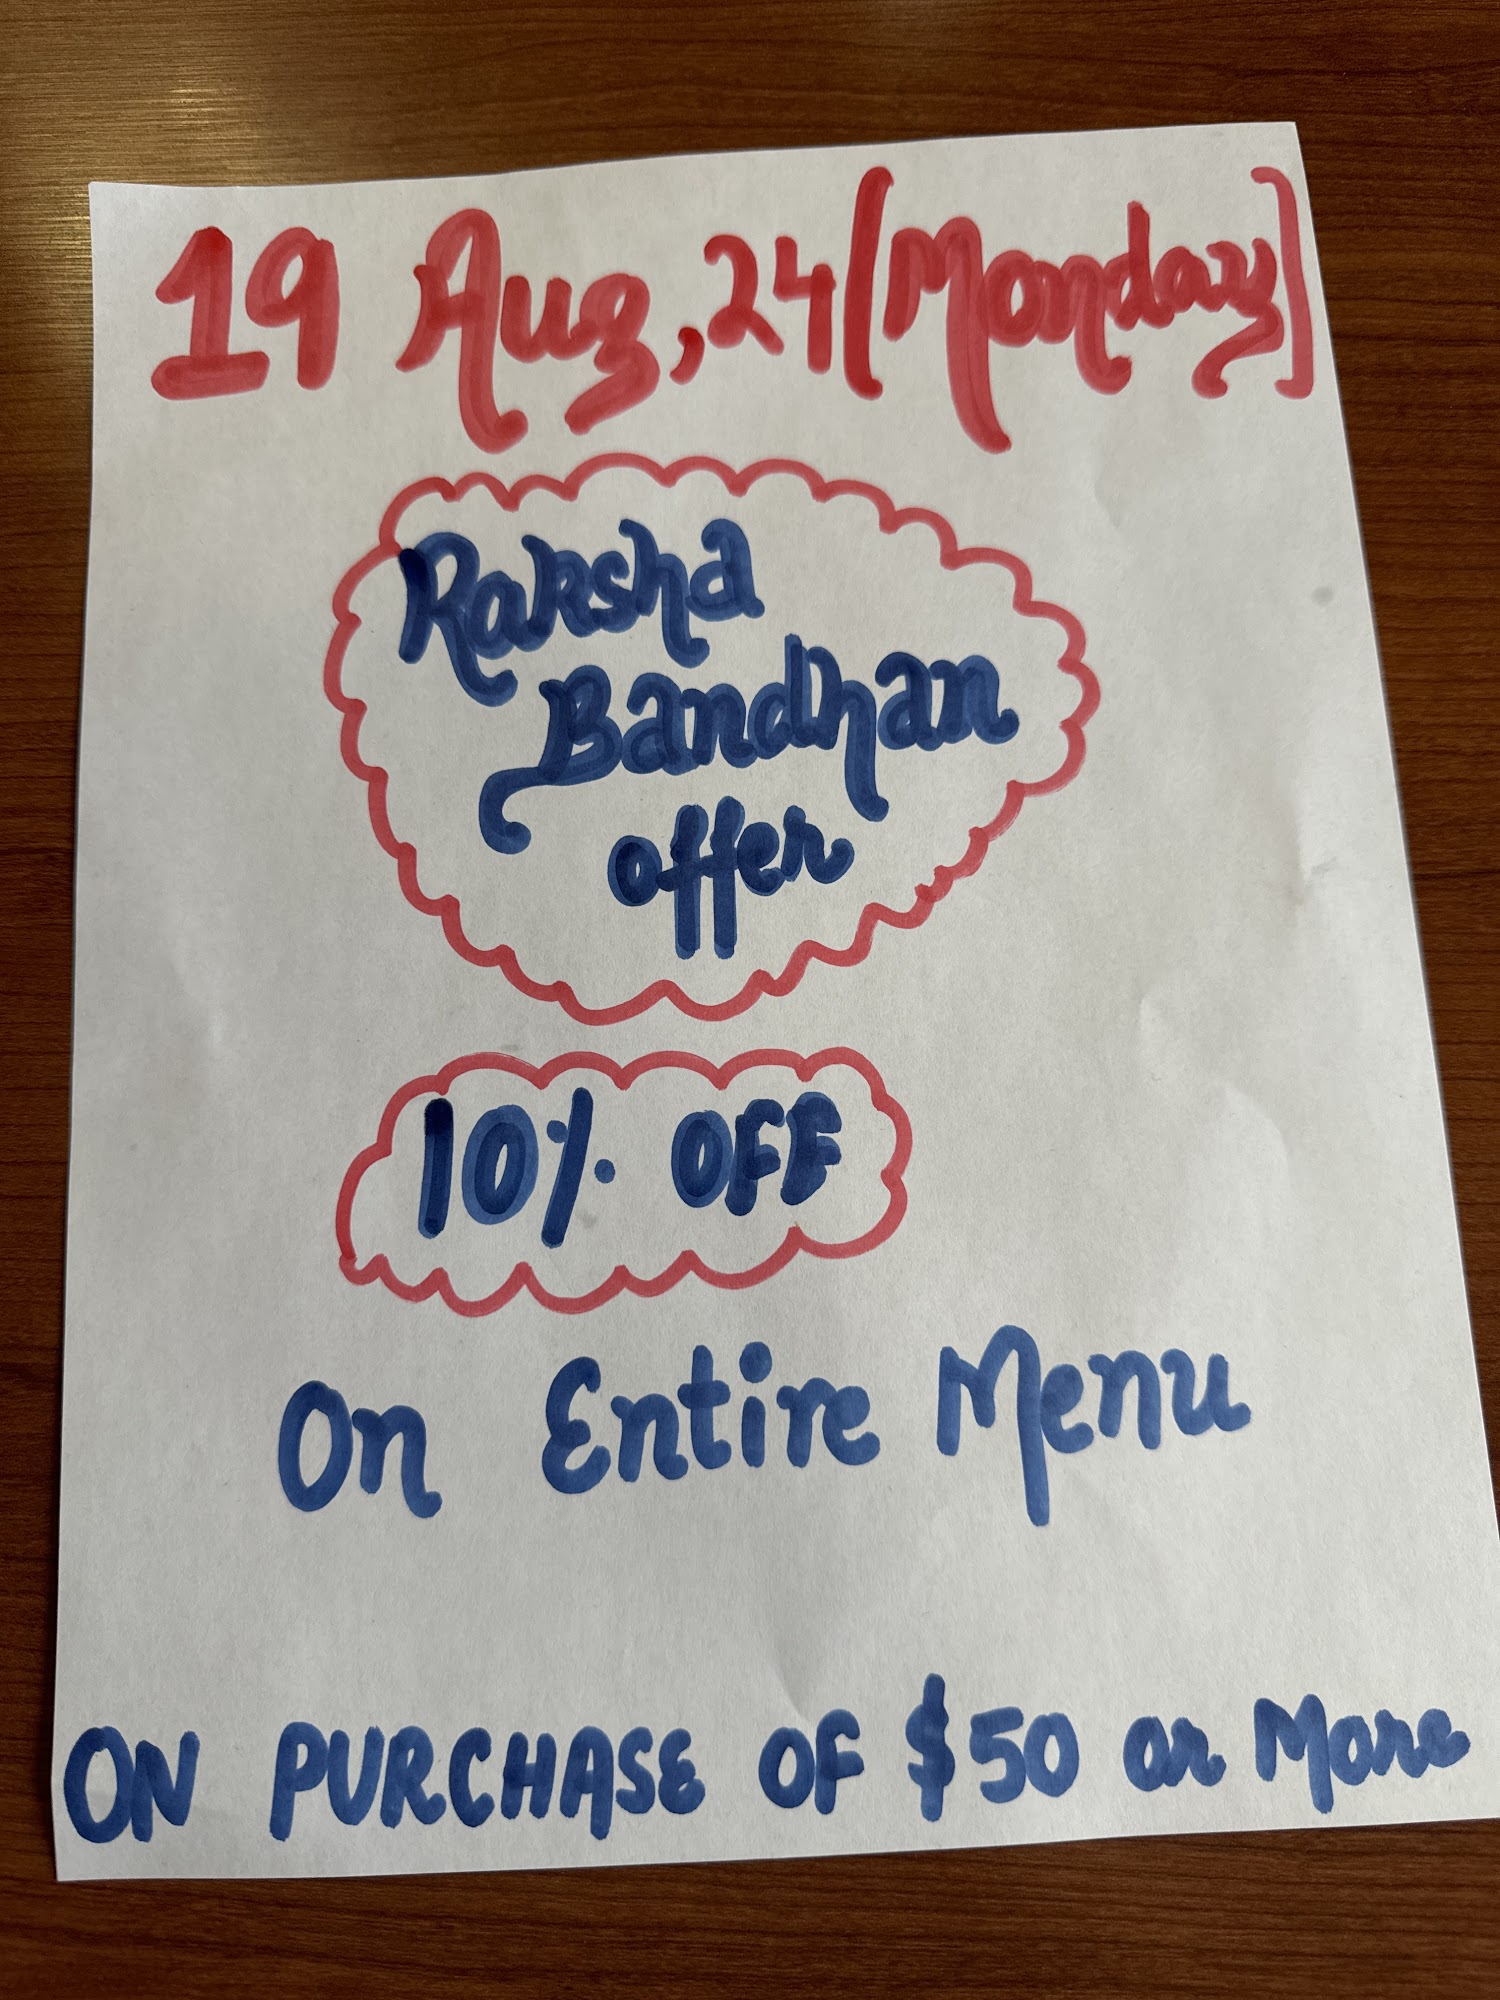 19 Aug, 24 (Monday)
Raksha
Bandhan
offer
10% OFF
On Entire Menu
ON PURCHASE OF $50 or More